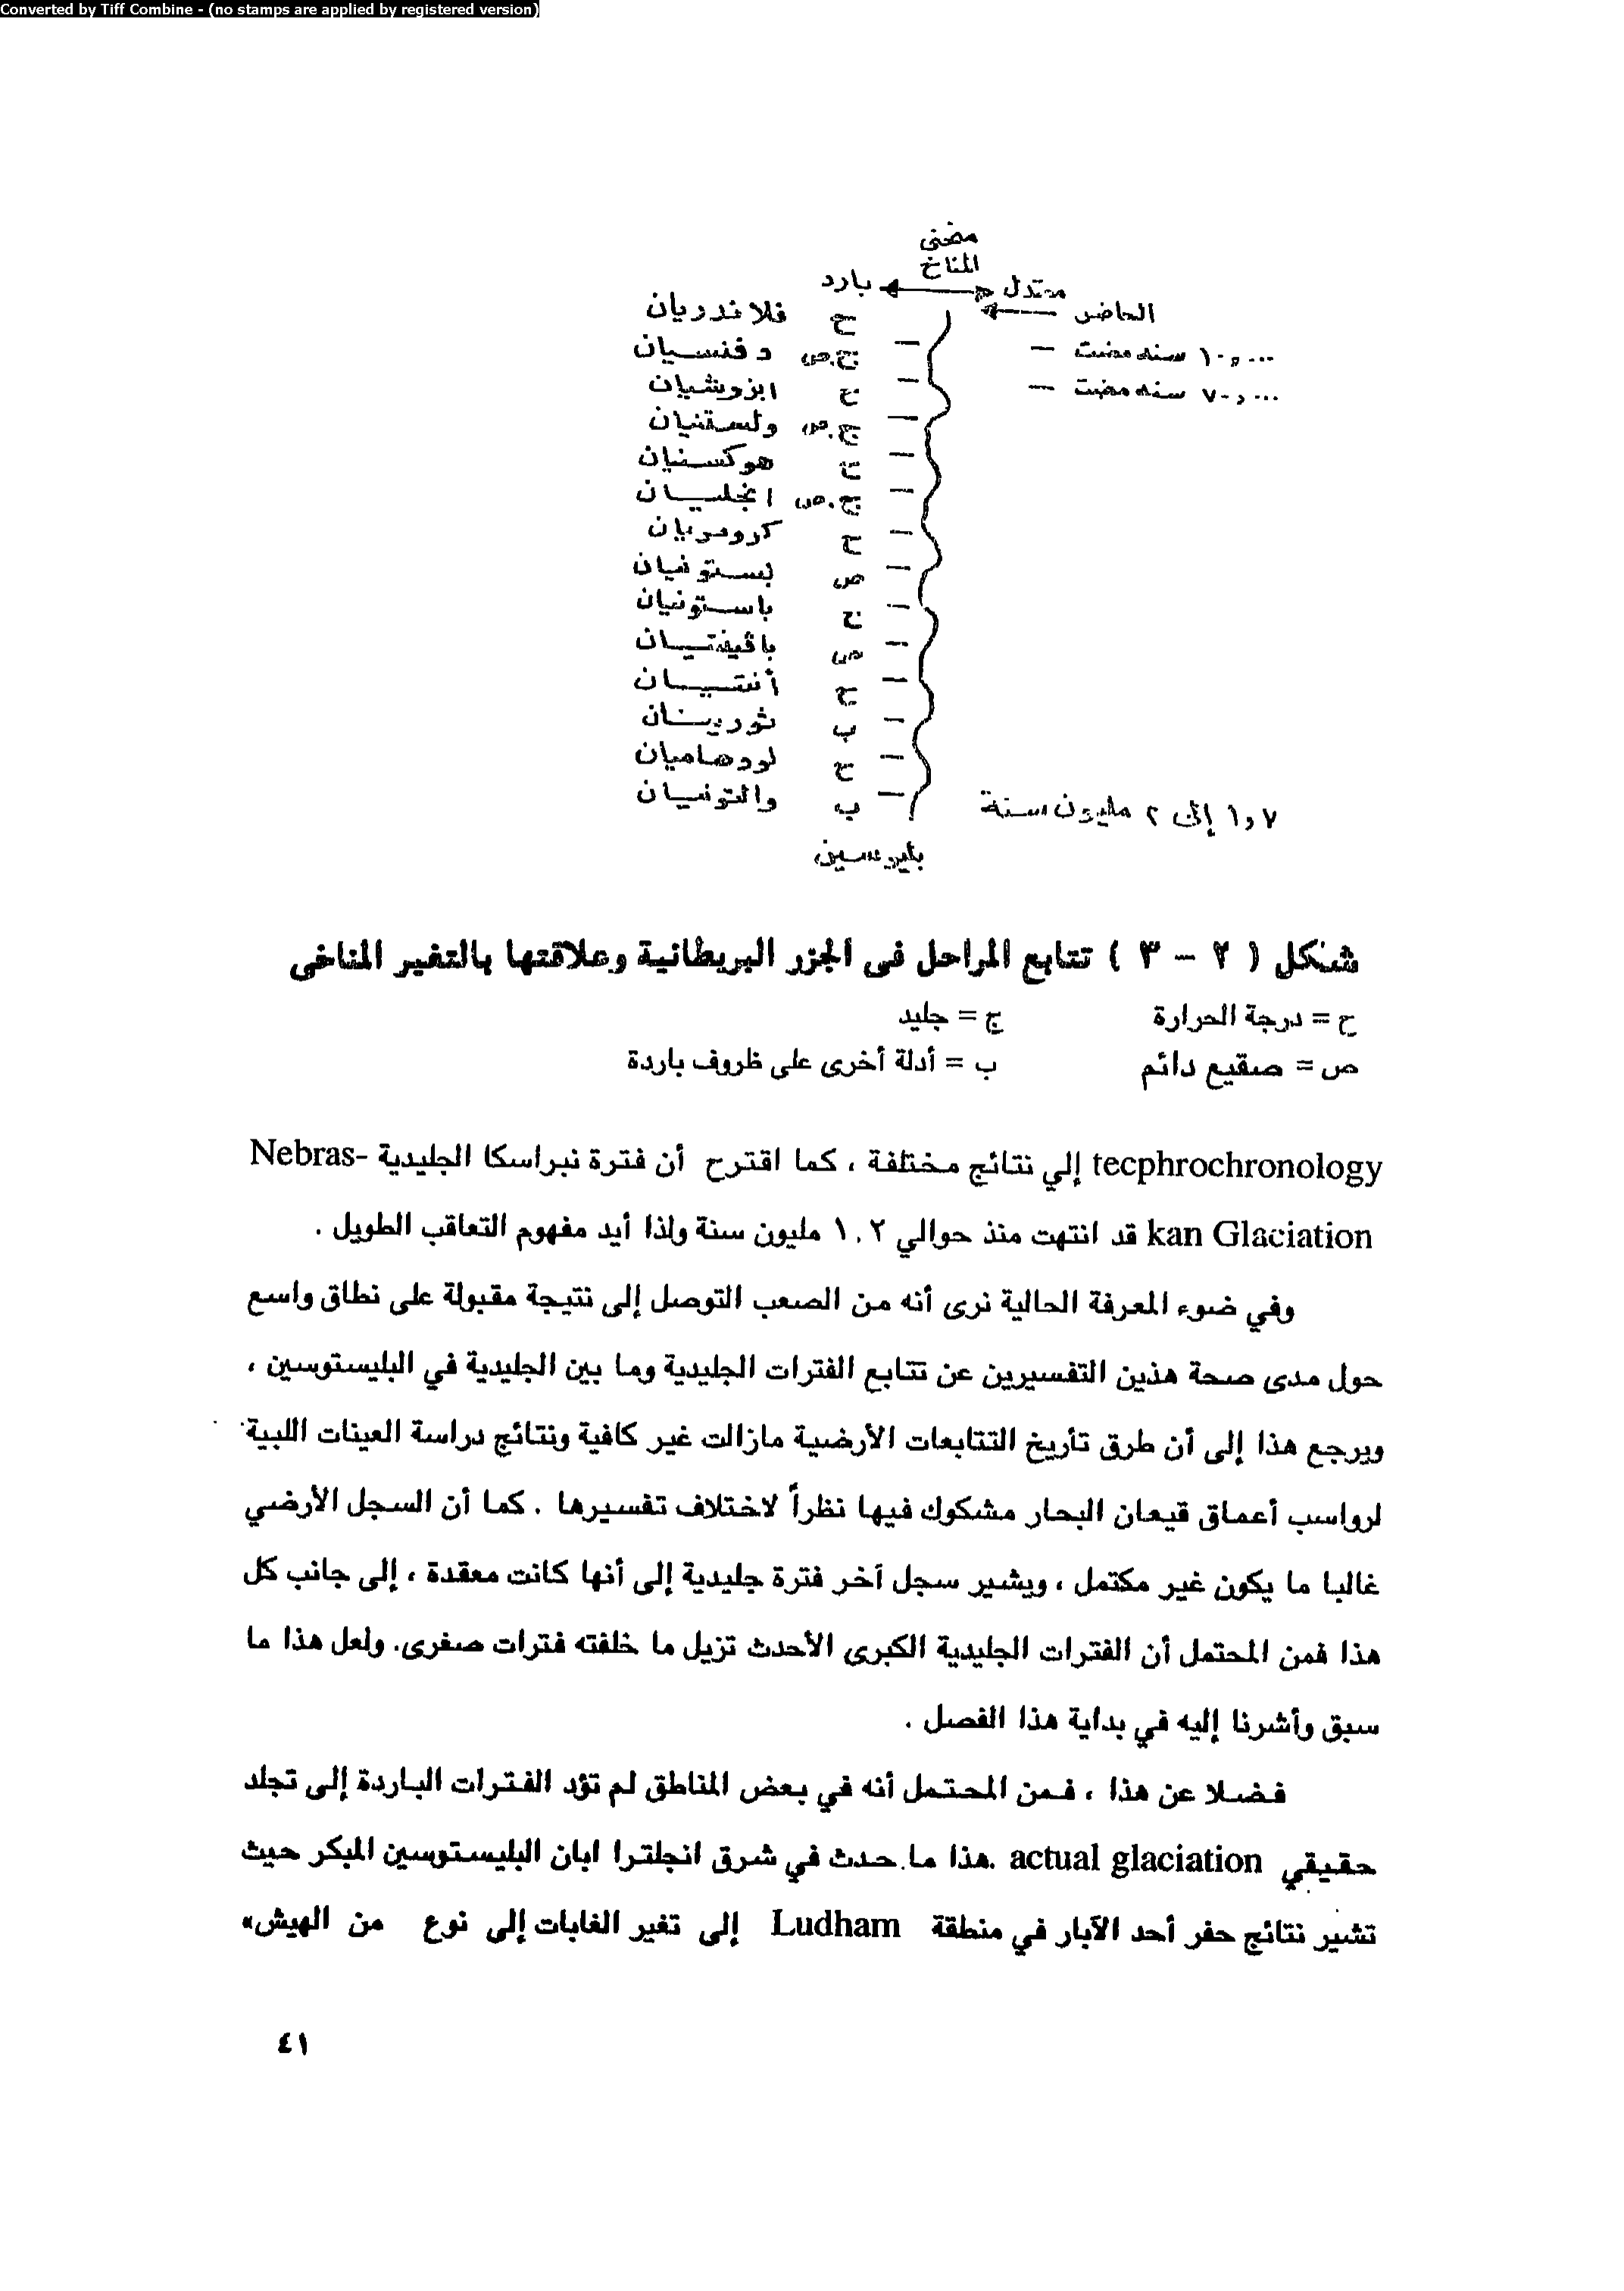 Converted by Tiff Combine - (no stamps are applied by registered version)
منحنى
المناخ
معتدل بارد
الحاضر
١٠,٠٠٠ سنه مضت
٧٠,٠٠٠ سنه مضت
ح فلاندريان
ج.ص دفنسيان
ح ابزوشيان
ج.ص ولستنيان
ح هوكسنيان
ج.ص انجليان
ح كروميريان
ص بستونيان
ح باستونيان
ص بافينتيان
ح أنتيان
ب ثورينان
ح لودهاميان
ب والتونيان
١,٧ إلى ٢ مليون سنة
بليوسين
شكل ( ٢ - ٣ ) تتابع المراحل فى الجزر البريطانية وعلاقتها بالتغير المناخى
ح = درجة الحرارة ج = جليد
ص = صقيع دائم ب = أدلة أخرى على ظروف باردة
tecphrochronology إلي نتائج مختلفة ، كما اقترح أن فترة نبراسكا الجليدية Nebras-
kan Glaciation قد انتهت منذ حوالي ١.٢ مليون سنة ولذا أيد مفهوم التعاقب الطويل .
وفي ضوء المعرفة الحالية نرى أنه من الصعب التوصل إلى نتيجة مقبولة على نطاق واسع
حول مدى صحة هذين التفسيرين عن تتابع الفترات الجليدية وما بين الجليدية في البليستوسين ،
ويرجع هذا إلى أن طرق تأريخ التتابعات الأرضية مازالت غير كافية ونتائج دراسة العينات اللبية
لرواسب أعماق قيعان البحار مشكوك فيها نظراً لاختلاف تفسيرها . كما أن السجل الأرضي
غالبا ما يكون غير مكتمل ، ويشير سجل آخر فترة جليدية إلى أنها كانت معقدة ، إلى جانب كل
هذا فمن المحتمل أن الفترات الجليدية الكبرى الأحدث تزيل ما خلفته فترات صغرى. ولعل هذا ما
سبق وأشرنا إليه في بداية هذا الفصل .
فضلا عن هذا ، فمن المحتمل أنه في بعض المناطق لم تؤد الفترات الباردة إلى تجلد
حقيقي actual glaciation .هذا ما حدث في شرق انجلترا ابان البليستوسين المبكر حيث
تشير نتائج حفر أحد الآبار في منطقة Ludham إلى تغير الغابات إلى نوع من الهيش»
٤١